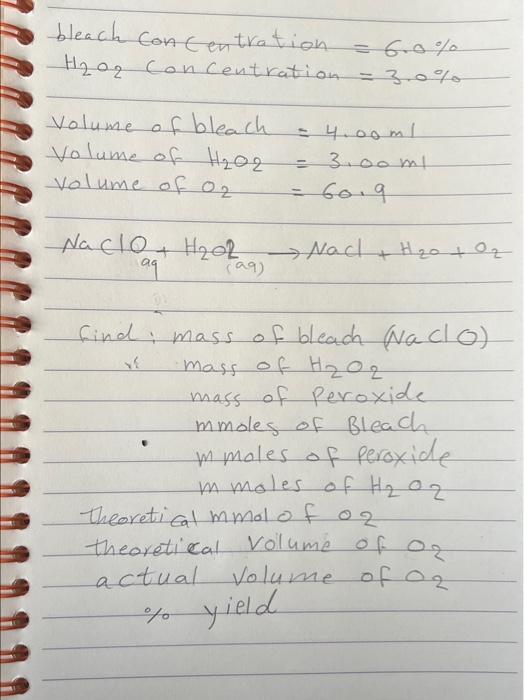 bleach concentration = 6.0%
H2O2 concentration = 3.0%
Volume of bleach = 4.00ml
Volume of H2O2 = 3.00ml
Volume of O2 = 60.9
NaClO aq + H2O2 (aq) → NaCl + H2O + O2
find: mass of bleach (NaClO)
mass of H2O2
mass of Peroxide
mmoles of Bleach
mmoles of peroxide
mmoles of H2O2
theoretical mmol of O2
theoretical volume of O2
actual volume of O2
% yield